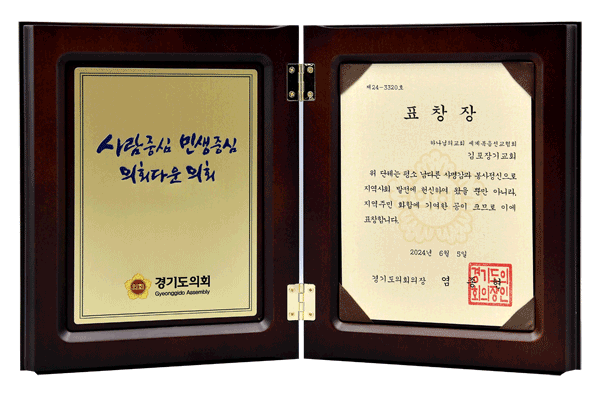 사람중심 민생중심
의회다운 의회
의회
경기도의회
Gyeonggido Assembly
제24-3320호
표 창 장
하나님의교회 세계복음선교협회
김포장기교회
위 단체는 평소 남다른 사명감과 봉사정신으로
지역사회 발전에 헌신하여 왔을 뿐만 아니라,
지역주민 화합에 기여한 공이 크므로 이에
표창합니다.
2024년 6월 5일
경기도의회의장 염
경기도의
회의장인